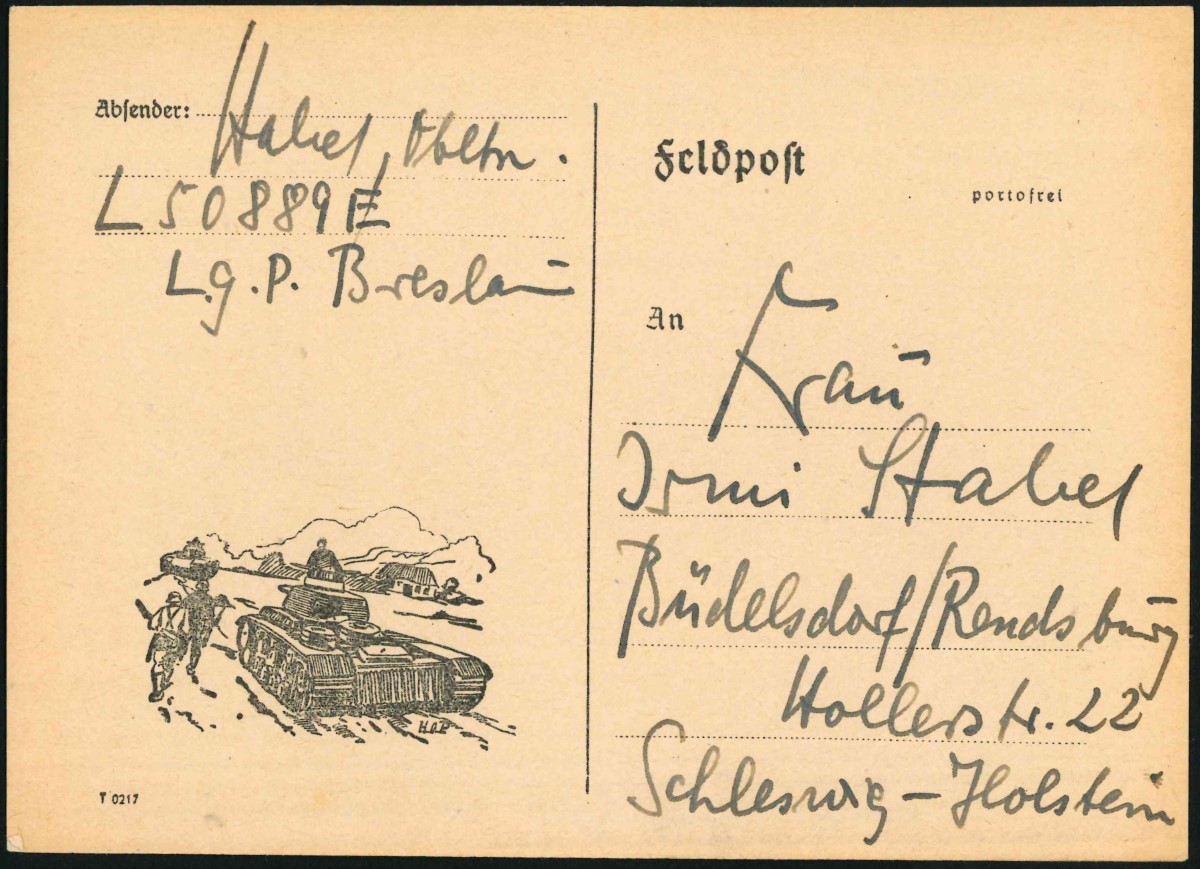 Absender: Stabel, Obltn.
L 50889 E
L.g.P. Breslau
Feldpost
portofrei
An Frau
Irmi Stabel
Büdelsdorf/Rendsburg
Hollerstr. 22
Schleswig-Holstein
T 0217